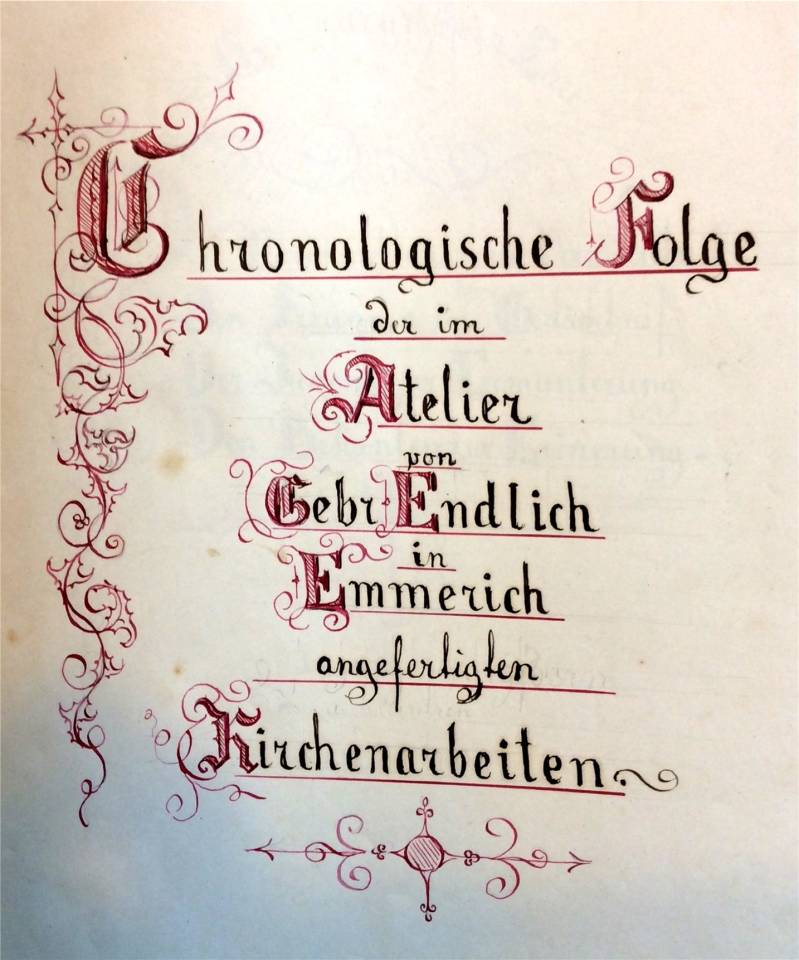 Chronologische Folge
der im
Atelier
von
Gebr Endlich
in
Emmerich
angefertigten
Kirchenarbeiten.